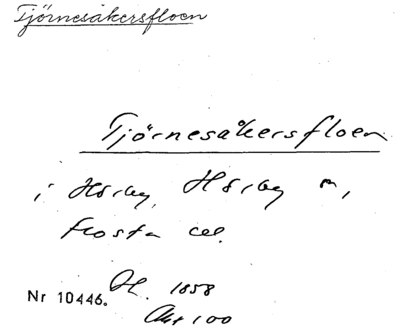 Tjörnesåkersfloen
Tjörnesåkersfloen
i Hörby, Hörby sn,
Frosta hd.
Nr 10446. H. 1858
Akt 100